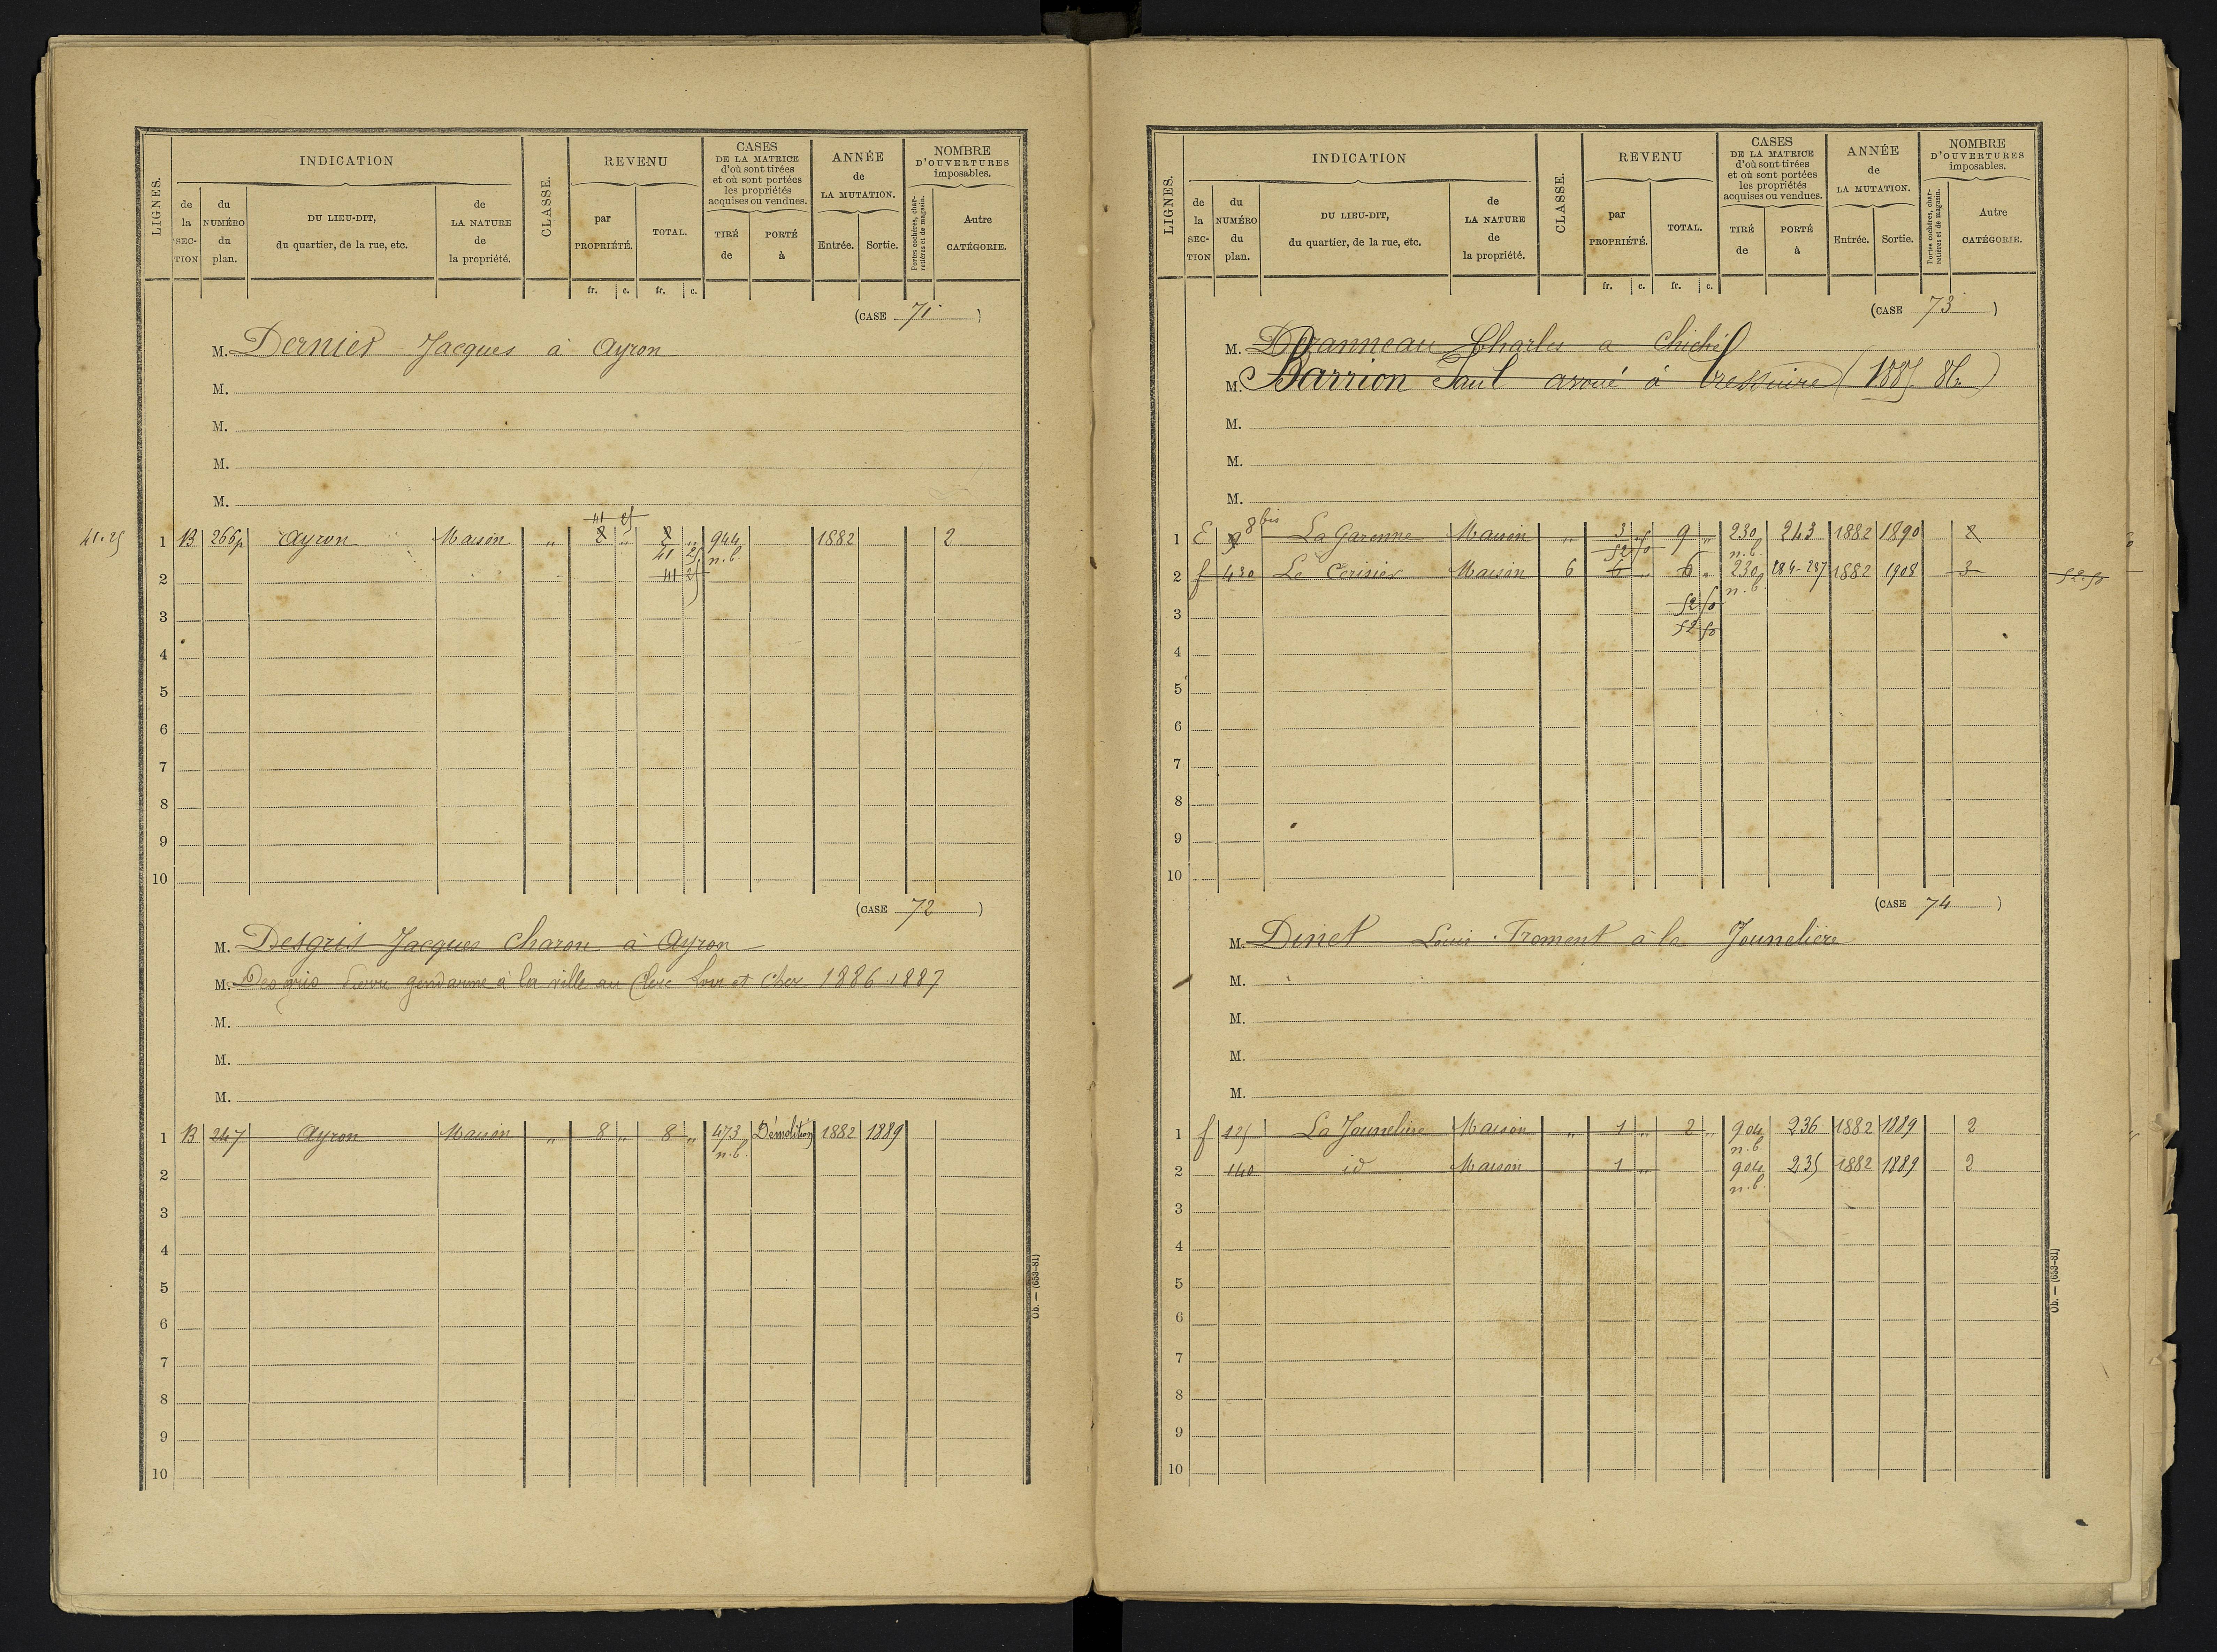 LIGNES.
INDICATION
CLASSE.
REVENU
CASES
DE LA MATRICE
d'où sont tirées
et où sont portées
les propriétés
acquises ou vendues.
ANNÉE
de
LA MUTATION.
NOMBRE
D'OUVERTURES
imposables.
de la SECTION
du NUMÉRO du plan.
DU LIEU-DIT,
du quartier, de la rue, etc.
de LA NATURE de la propriété.
par PROPRIÉTÉ.
TOTAL.
TIRÉ de
PORTÉ à
Entrée.
Sortie.
Portes cochères, charretières et de magasin.
Autre CATÉGORIE.
fr. c. fr. c.
(CASE 71)
M. Dernier Jacques à Ayron
M.
M.
M.
M.
41 25
41.25 1 B 266p Ayron Maison " 8 " 8 " 944 1882 2
41 25 n.b
2 41 25
3
4
5
6
7
8
9
10
(CASE 72)
M. Desgris Jacques Charon à Ayron
M. Desgris Pierre gendarme à la ville au Clerc Loir et Cher 1886.1887
M.
M.
M.
1 B 247 Ayron Maison " 8 " 8 " 473 Démolition 1882 1889
n.b.
2
3
4
5
6
7
8
9
10
Ob. — (653-81)
LIGNES.
INDICATION
CLASSE.
REVENU
CASES
DE LA MATRICE
d'où sont tirées
et où sont portées
les propriétés
acquises ou vendues.
ANNÉE
de
LA MUTATION.
NOMBRE
D'OUVERTURES
imposables.
de la SECTION
du NUMÉRO du plan.
DU LIEU-DIT,
du quartier, de la rue, etc.
de LA NATURE de la propriété.
par PROPRIÉTÉ.
TOTAL.
TIRÉ de
PORTÉ à
Entrée.
Sortie.
Portes cochères, charretières et de magasin.
Autre CATÉGORIE.
fr. c. fr. c.
(CASE 73)
M. Charles a Chiché
M. Barrion Paul avoué à Bressuire (1885.86)
M.
M.
M.
8 bis
1 E La Garenne Maison " 3 " 9 " 230 243 1882 1890 2
52 50 n.b.
2 f 430 Le Cerisier Maison 6 6 " 6 " 230 284-287 1882 1908 3 52.50
n.b.
52 50
3 52 50
4
5
6
7
8
9
10
(CASE 74)
M. Dinet Louis Froment à la Jounelière
M.
M.
M.
M.
1 f 125 La Jounelière Maison " 1 " 2 " 904 236 1882 1889 2
n.b.
2 140 id Maison 1 " 904 235 1882 1889 2
n.b.
3
4
5
6
7
8
9
10
Ob. — (653-81)